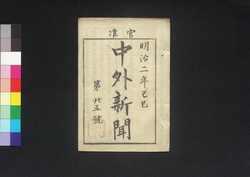 官准
明治二年己巳
中外新聞
第廿五號